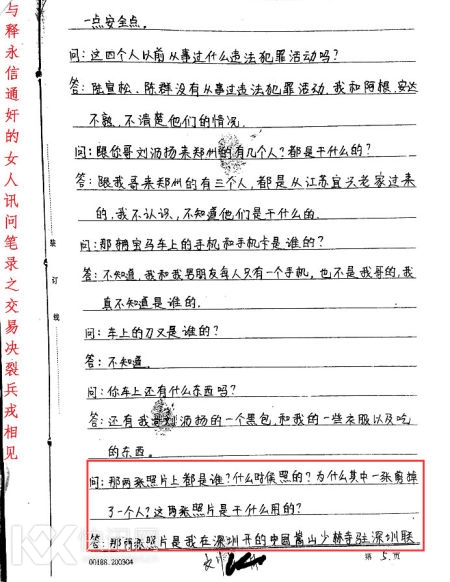 与释永信通奸的女人讯问笔录之交易决裂兵戎相见
一点安全点.
问:这四个人以前从事过什么违法犯罪活动吗?
答:陆宣松、陈群没有从事过违法犯罪活动.我和阿根,安达
不熟,不清楚他们的情况.
问:跟你哥刘沥扬来郑州的有几个人?都是干什么的?
答:跟我哥来郑州的有三个人,都是从江苏宜兴老家过来
的,我不认识,不知道他们是干什么的.
问:那辆宝马车上的手机和手机卡是谁的?
答:不知道.我和我男朋友每人只有一个手机,也不是我哥的,我
真不知道是谁的.
装订线
问:车上的刀又是谁的?
答:不知道.
问:你车上还有什么东西吗?
答:还有我哥刘沥扬的一个黑包,和我的一些衣服以及吃
的东西.
问:那两张照片上都是谁?什么时侯照的?为什么其中一张剪掉
了一个人?这两张照片是干什么用的?
答:那两张照片是我在深圳开的中國嵩山少林寺驻深圳联
00188.200304
第 5 页